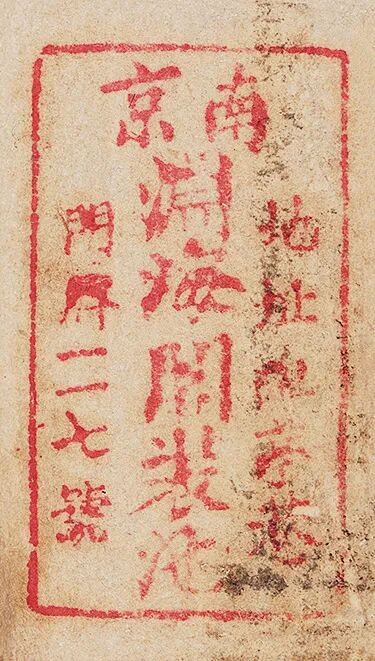 南京
地址
淵海閣裝池
門牌二七號